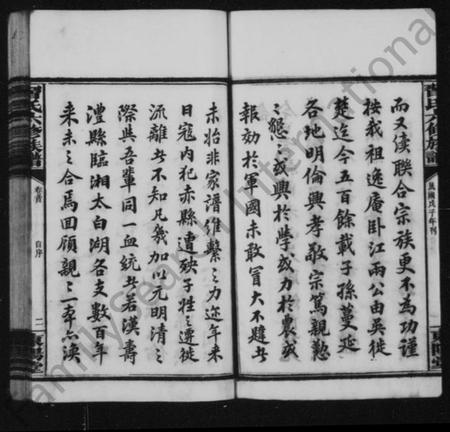 曹氏六修族譜
民國戊子年刊
而又須聯合宗族更不為功謹
按我祖逸庵卧江兩公由吳徙
楚迄今五百餘載子孫蔓延
各地明倫興孝敬宗篤親懃
懃之或興於學或力於農或
報効於軍國未敢冒大不韙此
未始非家譜維繫之力迩年來
日寇内犯赤縣遭殃子姓之遷徙
流離者不知凡幾加以元明清之
際與吾輩同一血統者若漢壽
澧縣臨湘太白湖各支數百年
來未之合焉回顧親之一本
曹氏六修族譜
卷首
自序
二
FamilySearch International